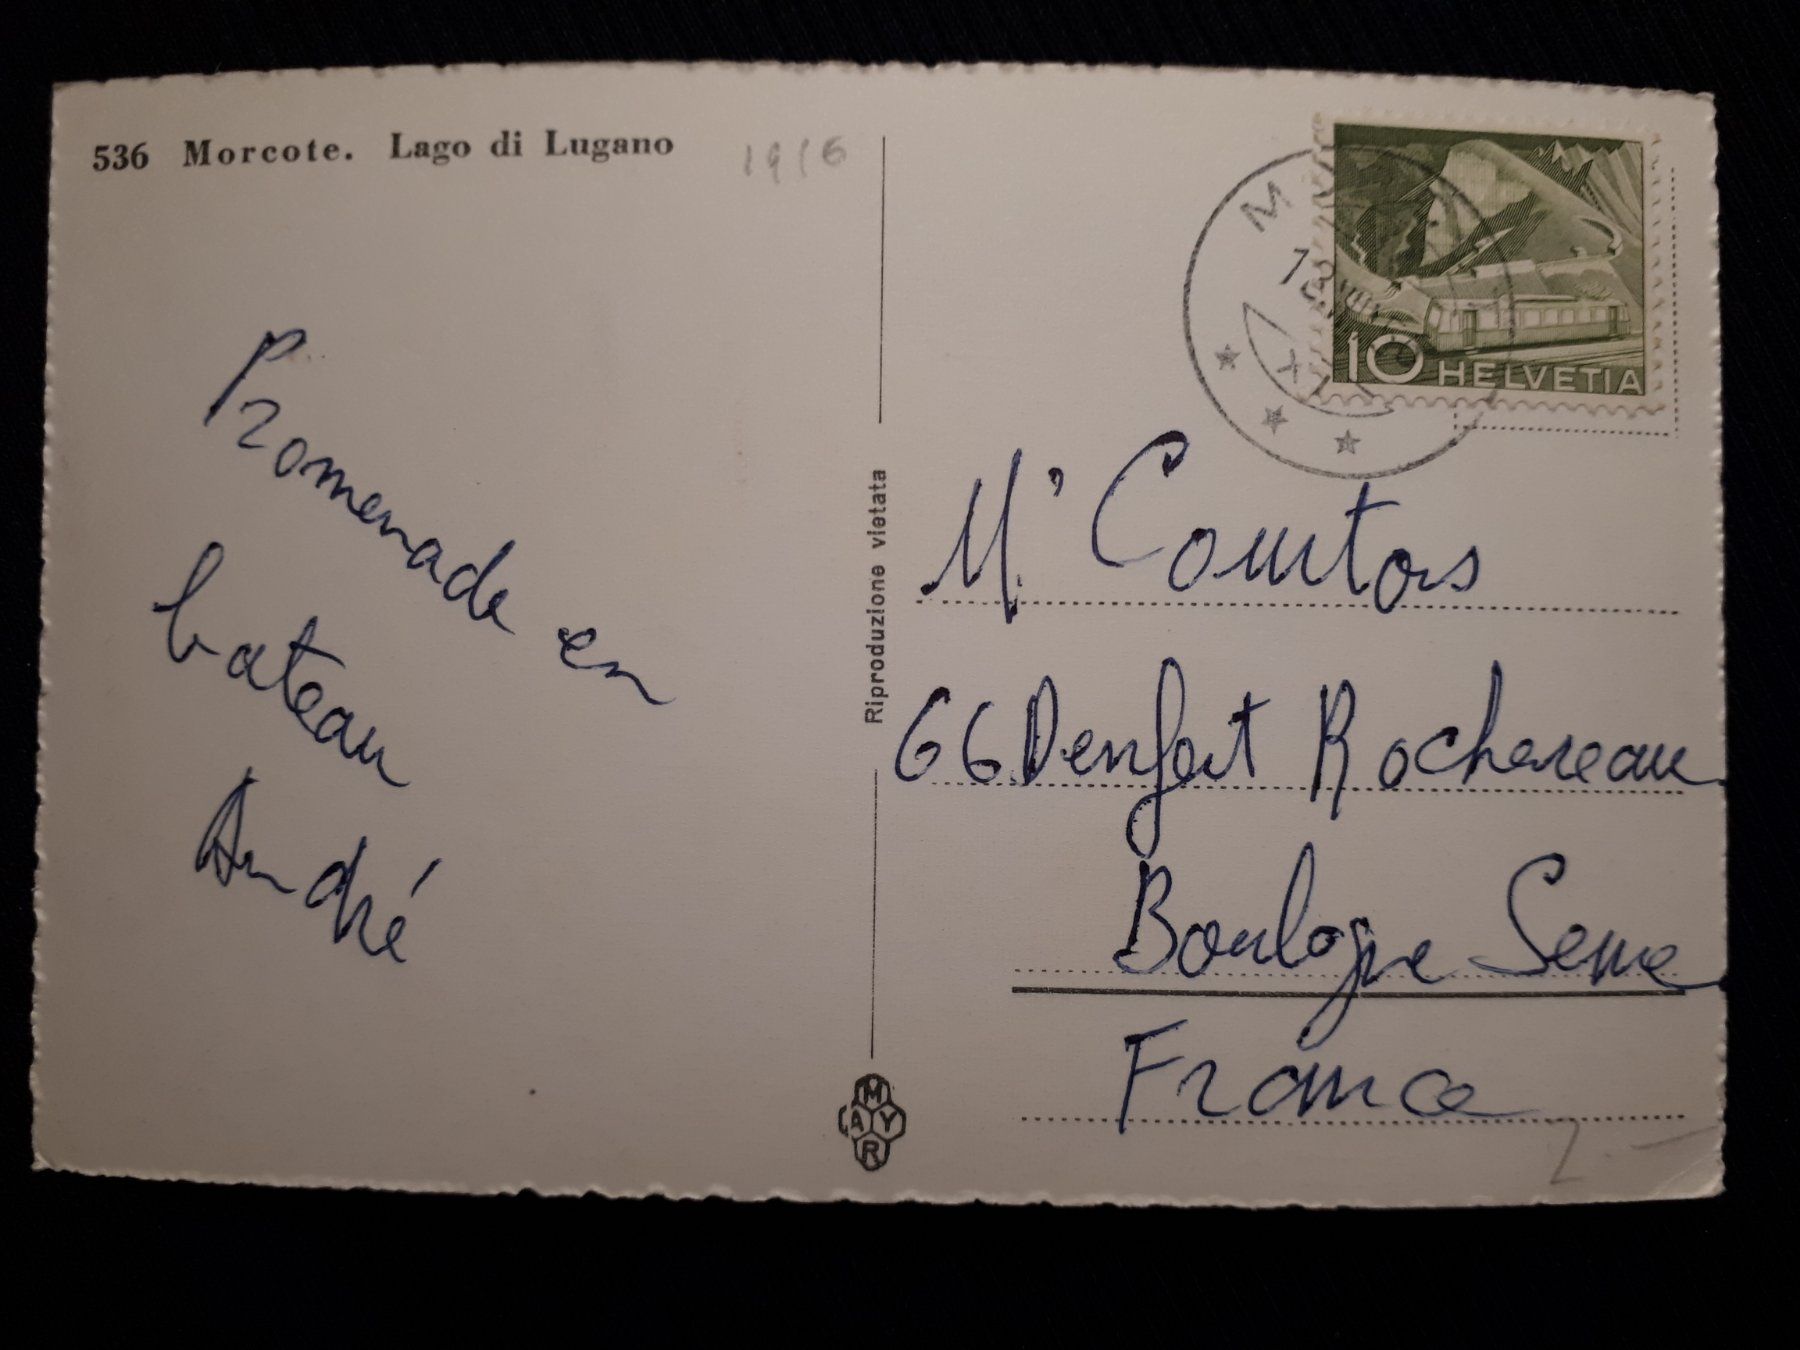 536 Morcote. Lago di Lugano
1916
Promenade en
bateau
André
Riproduzione vietata
MAYR
10 HELVETIA
Mr Courtois
66 Denfert Rochereau
Boulogne Seine
France
2.-